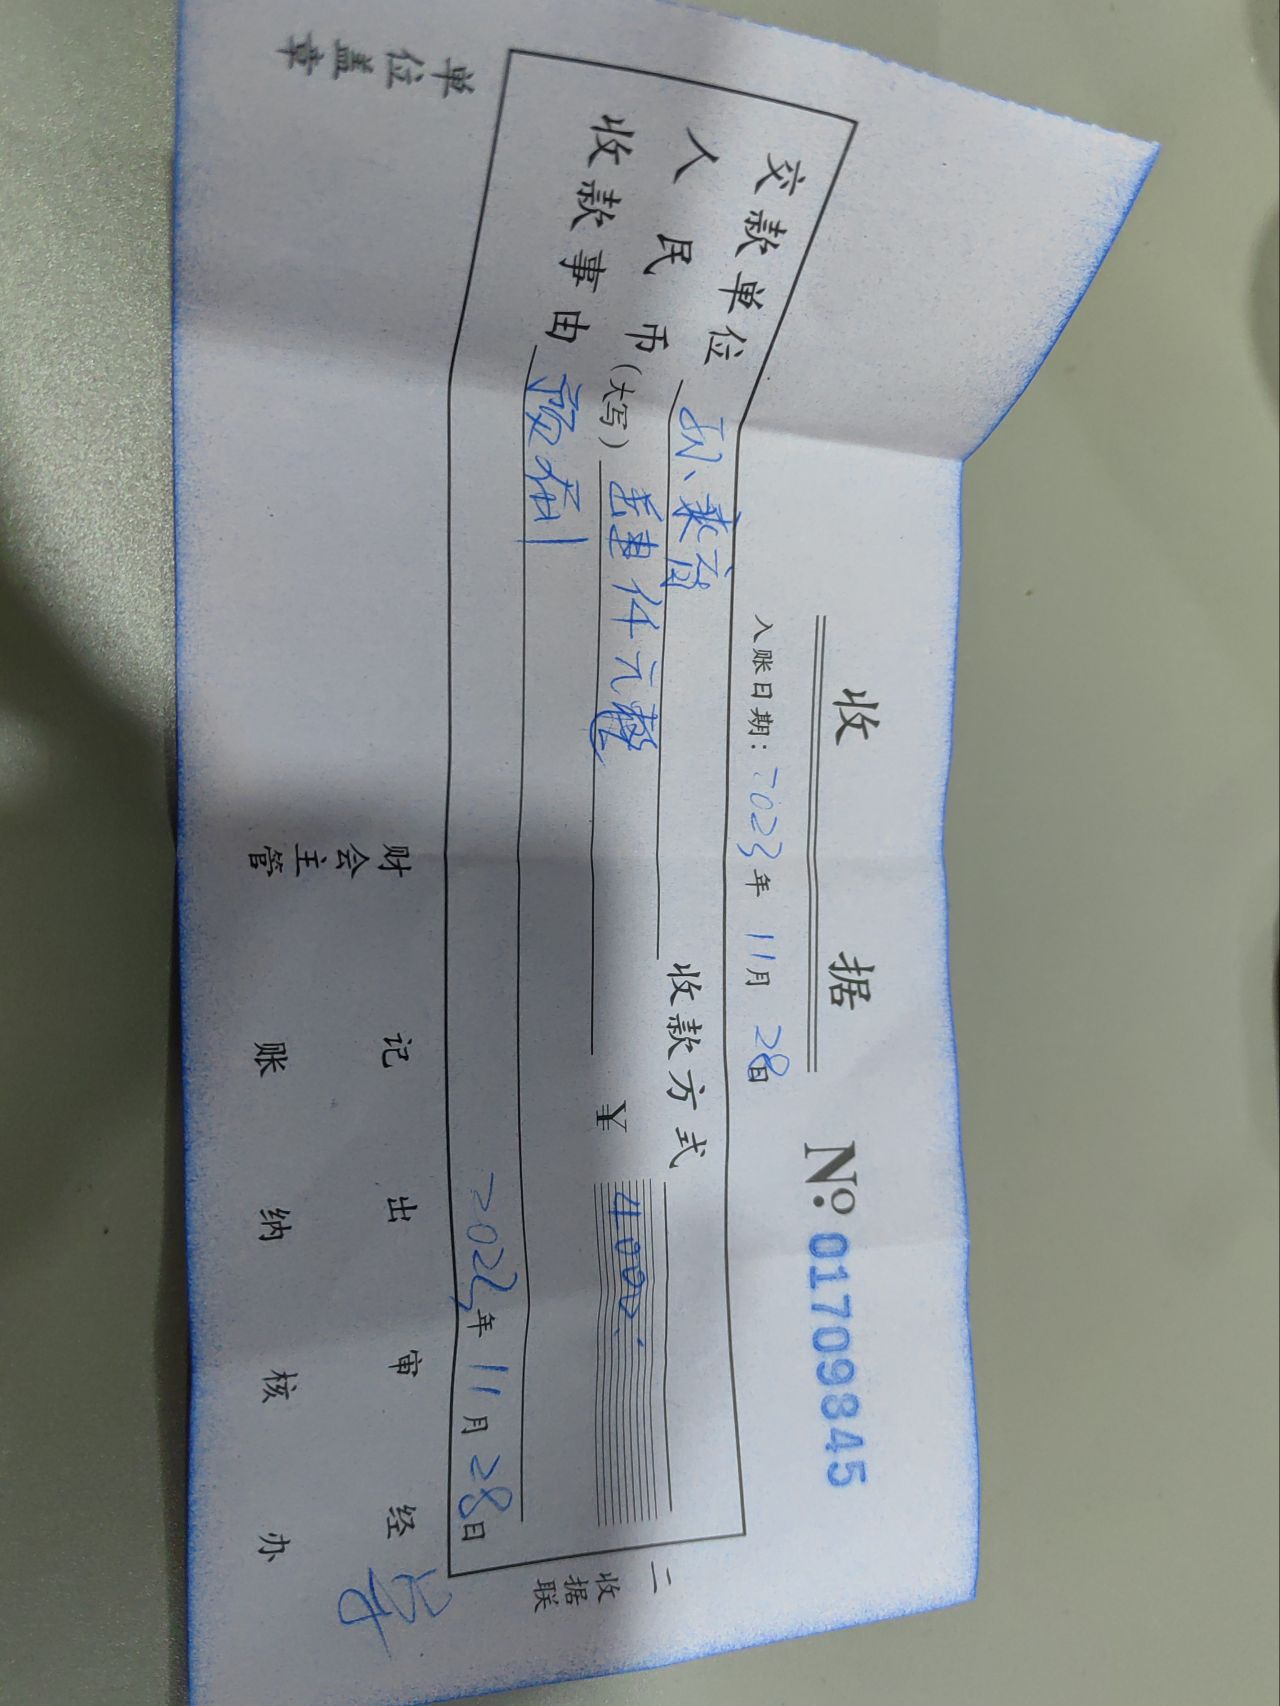 收 据
№ 01709845
入账日期：2023年 11月 28日
交款单位 收款方式
人民币(大写) 仟元整 ¥ 4000.
收款事由
2023年 11月 28日
二 收据联
单位盖章 财会主管 记账 出纳 审核 经办